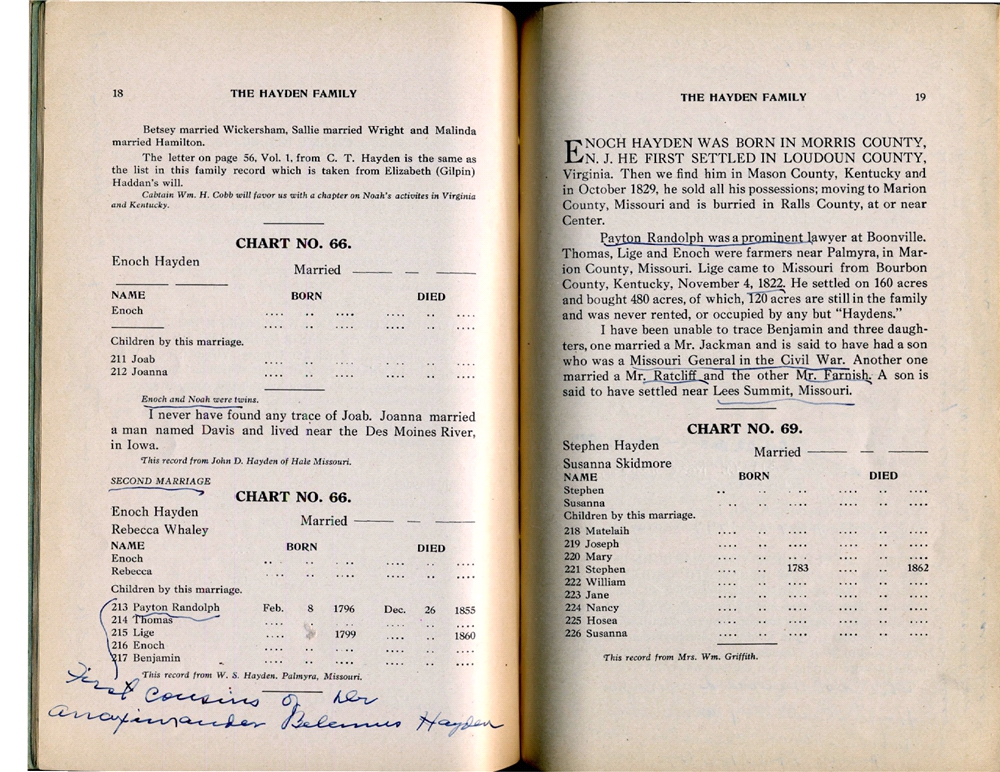 18 THE HAYDEN FAMILY
Betsey married Wickersham, Sallie married Wright and Malinda
married Hamilton.
The letter on page 56, Vol. 1, from C. T. Hayden is the same as
the list in this family record which is taken from Elizabeth (Gilpin)
Haddan's will.
Cabtain Wm. H. Cobb will favor us with a chapter on Noah's activites in Virginia
and Kentucky.
CHART NO. 66.
Enoch Hayden
Married
NAME BORN DIED
Enoch .... .. .... .... .. ....
.... .. .... .... .. ....
Children by this marriage.
211 Joab .... .. .... .... .. ....
212 Joanna .... .. .... .... .. ....
Enoch and Noah were twins.
I never have found any trace of Joab. Joanna married
a man named Davis and lived near the Des Moines River,
in Iowa.
This record from John D. Hayden of Hale Missouri.
SECOND MARRIAGE
CHART NO. 66.
Enoch Hayden
Married
Rebecca Whaley
NAME BORN DIED
Enoch .. .. .... .... .. ....
Rebecca .. .. .... .... .. ....
Children by this marriage.
213 Payton Randolph Feb. 8 1796 Dec. 26 1855
214 Thomas .... .. .... .... .. ....
215 Lige .... 1799 .... .. 1860
216 Enoch .... .. .... .... .. ....
217 Benjamin .... .. .... .... .. ....
This record from W. S. Hayden. Palmyra, Missouri.
First cousins of
Hayden
THE HAYDEN FAMILY 19
ENOCH HAYDEN WAS BORN IN MORRIS COUNTY,
N. J. HE FIRST SETTLED IN LOUDOUN COUNTY,
Virginia. Then we find him in Mason County, Kentucky and
in October 1829, he sold all his possessions; moving to Marion
County, Missouri and is burried in Ralls County, at or near
Center.
Payton Randolph was a prominent lawyer at Boonville.
Thomas, Lige and Enoch were farmers near Palmyra, in Mar-
ion County, Missouri. Lige came to Missouri from Bourbon
County, Kentucky, November 4, 1822. He settled on 160 acres
and bought 480 acres, of which, 120 acres are still in the family
and was never rented, or occupied by any but "Haydens."
I have been unable to trace Benjamin and three daugh-
ters, one married a Mr. Jackman and is said to have had a son
who was a Missouri General in the Civil War. Another one
married a Mr. Ratcliff and the other Mr. Farnish. A son is
said to have settled near Lees Summit, Missouri.
CHART NO. 69.
Stephen Hayden
Married
Susanna Skidmore
NAME BORN DIED
Stephen .. .. .... .... .. ....
Susanna .. .. .... .... .. ....
Children by this marriage.
218 Matelaih .... .. .... .... .. ....
219 Joseph .... .. .... .... .. ....
220 Mary .... .. .... .... .. ....
221 Stephen .... .. 1783 .... .. 1862
222 William .... .. .... .... .. ....
223 Jane .... .. .... .... .. ....
224 Nancy .... .. .... .... .. ....
225 Hosea .... .. .... .... .. ....
226 Susanna .... .. .... .... .. ....
This record from Mrs. Wm. Griffith.